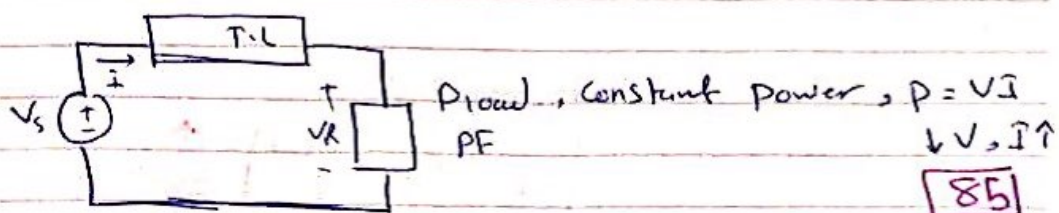 T.L
I
Vs + -
+ VR -
Pload, Constant power, P = VI
PF
↓V, I↑
85